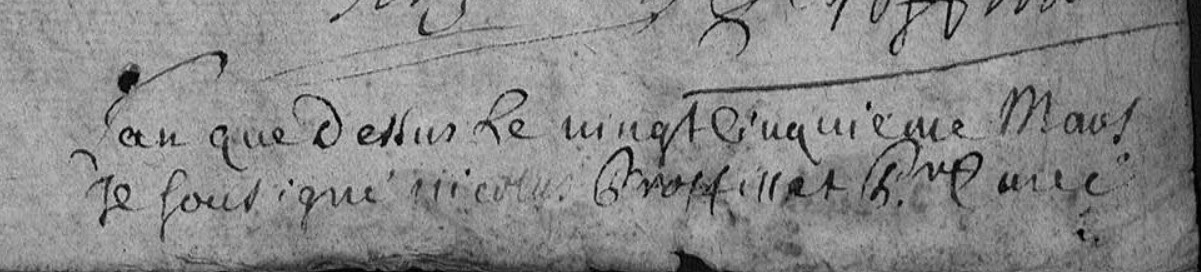 Lan que Dessus Le vingt Cinquieme Mars
Je soubsigné nicolas Ptre Curé